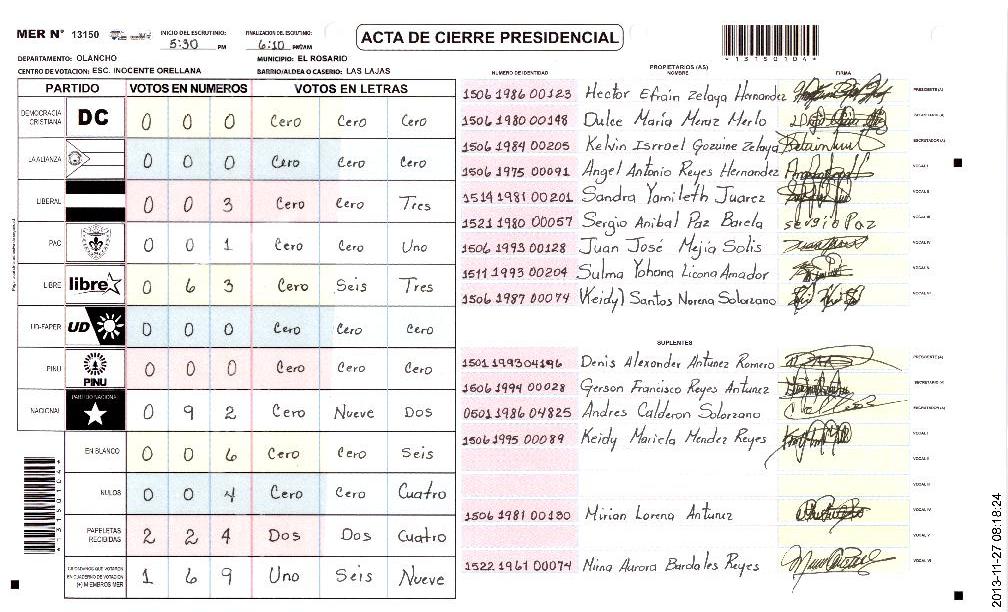 MER N° 13150
INICIO DEL ESCRUTINIO: 5:30 PM
FINALIZACION DEL ESCRUTINIO: 6:10 PM/AM
ACTA DE CIERRE PRESIDENCIAL
*13150104*
DEPARTAMENTO: OLANCHO
MUNICIPIO: EL ROSARIO
CENTRO DE VOTACION: ESC. INOCENTE ORELLANA
BARRIO/ALDEA O CASERIO: LAS LAJAS
PARTIDO VOTOS EN NUMEROS VOTOS EN LETRAS
DEMOCRACIA CRISTIANA DC 0 0 0 Cero Cero Cero
LA ALIANZA 0 0 0 Cero Cero Cero
LIBERAL 0 0 3 Cero Cero Tres
PAC 0 0 1 Cero Cero Uno
LIBRE libre 0 6 3 Cero Seis Tres
UD-FAPER UD 0 0 0 Cero Cero Cero
PINU PINU 0 0 0 Cero Cero Cero
NACIONAL PARTIDO NACIONAL 0 9 2 Cero Nueve Dos
EN BLANCO 0 0 6 Cero Cero Seis
NULOS 0 0 4 Cero Cero Cuatro
PAPELETAS RECIBIDAS 2 2 4 Dos Dos Cuatro
CIUDADANOS QUE VOTARON EN CUADERNO DE VOTACION (+) MIEMBROS MER 1 6 9 Uno Seis Nueve
*13150104*
PROPIETARIOS (AS)
NUMERO DE IDENTIDAD NOMBRE FIRMA
1506 1986 00123 Hector Efraín Zelaya Hernandez PRESIDENTE(A)
1506 1980 00198 Dulce María Meraz Merlo SECRETARIO(A)
1506 1984 00205 Kelvin Isrrael Gozuine Zelaya ESCRUTADOR(A)
1506 1975 00091 Angel Antonio Reyes Hernandez VOCAL I
1514 1981 00201 Sandra Yamileth Juarez VOCAL II
1521 1980 00057 Sergio Anibal Paz Barela sergio Paz VOCAL III
1506 1993 00128 Juan José Mejía Solis VOCAL IV
1511 1993 00204 Sulma Yohana Licona Amador VOCAL V
1506 1987 00074 Keidy) Santos Norena Solorzano VOCAL VI
SUPLENTES
1501 199304196 Denis Alexander Antunez Romero PRESIDENTE(A)
1606 1994 00028 Gerson Francisco Reyes Antunez SECRETARIO(A)
0501 1986 04825 Andres Calderon Solorzano ESCRUTADOR(A)
1506 1995 00089 Keidy Mariela Mendez Reyes VOCAL I
VOCAL II
VOCAL III
1506 1981 00130 Mirian Lorena Antunez VOCAL IV
VOCAL V
1522 1961 00074 Mina Aurora Bardales Reyes VOCAL VI
2013-11-27 08:18:24